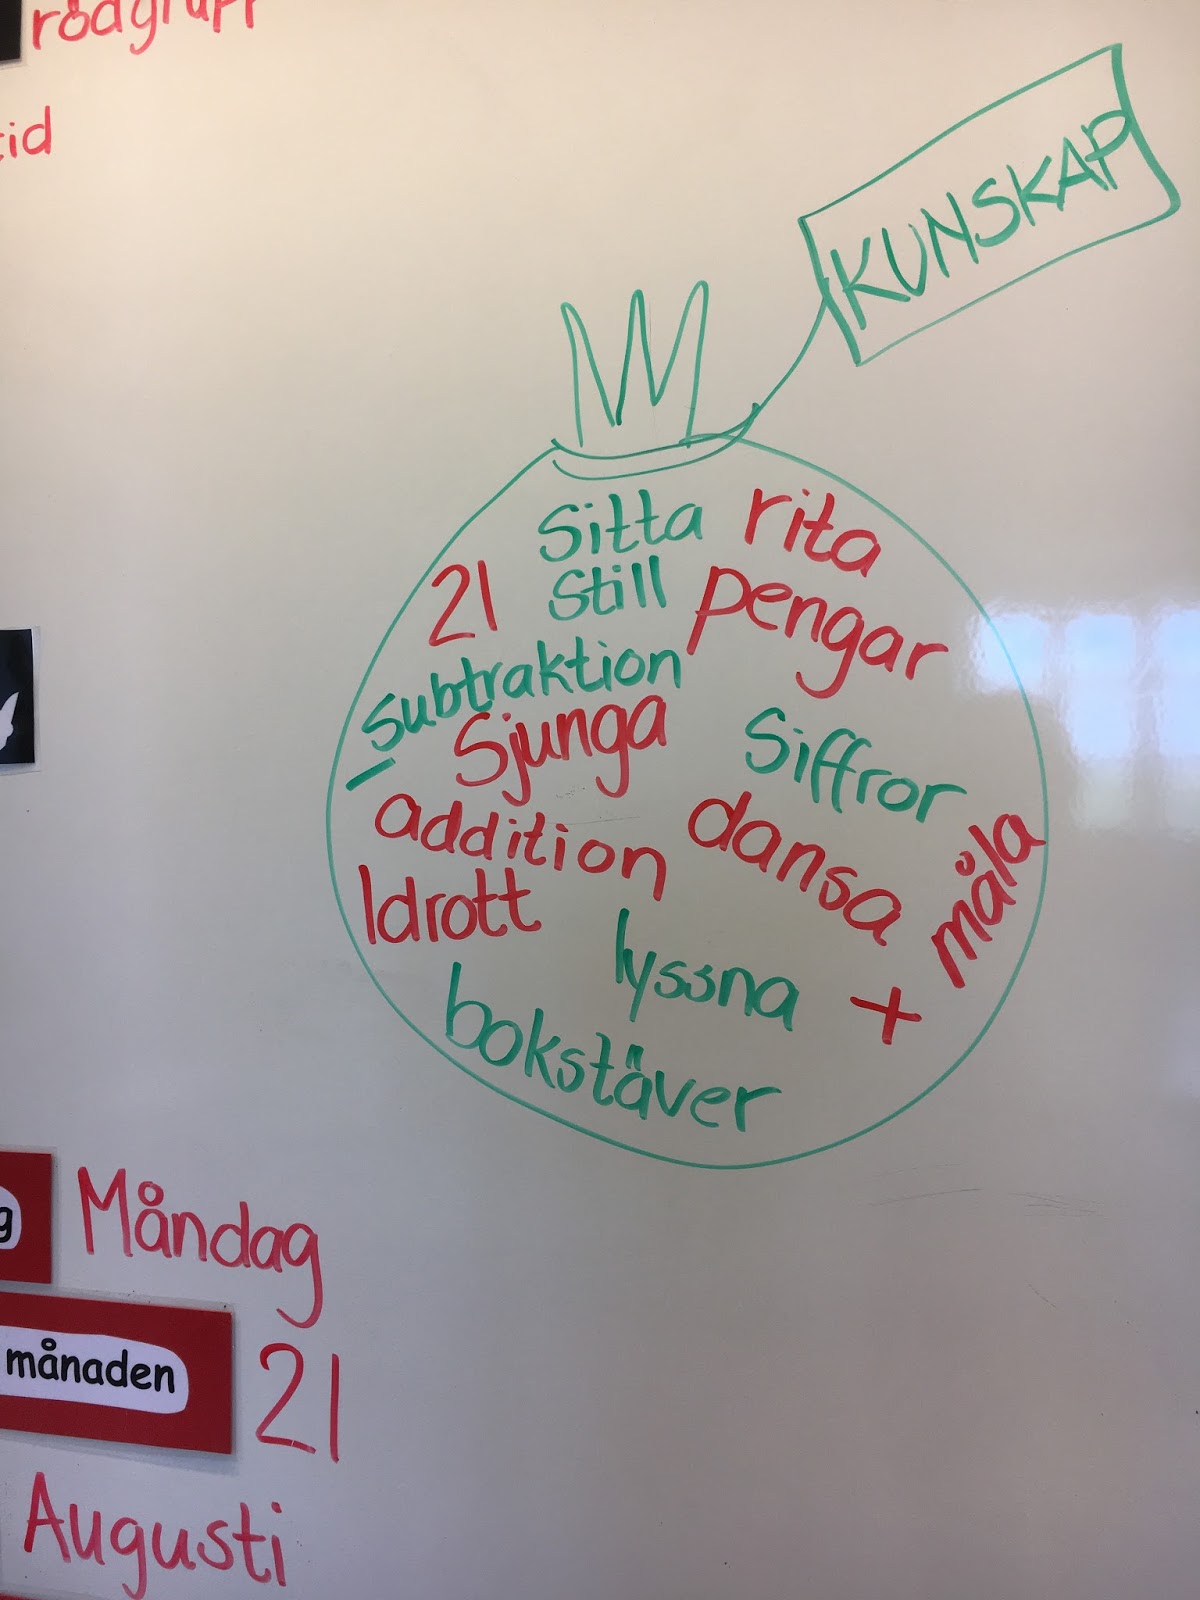 rödgrupp
tid
KUNSKAP
Sitta
Still
rita
21
pengar
subtraktion
-
Sjunga
Siffror
addition
dansa
måla
Idrott
lyssna
+
bokstäver
g
Måndag
månaden
21
Augusti